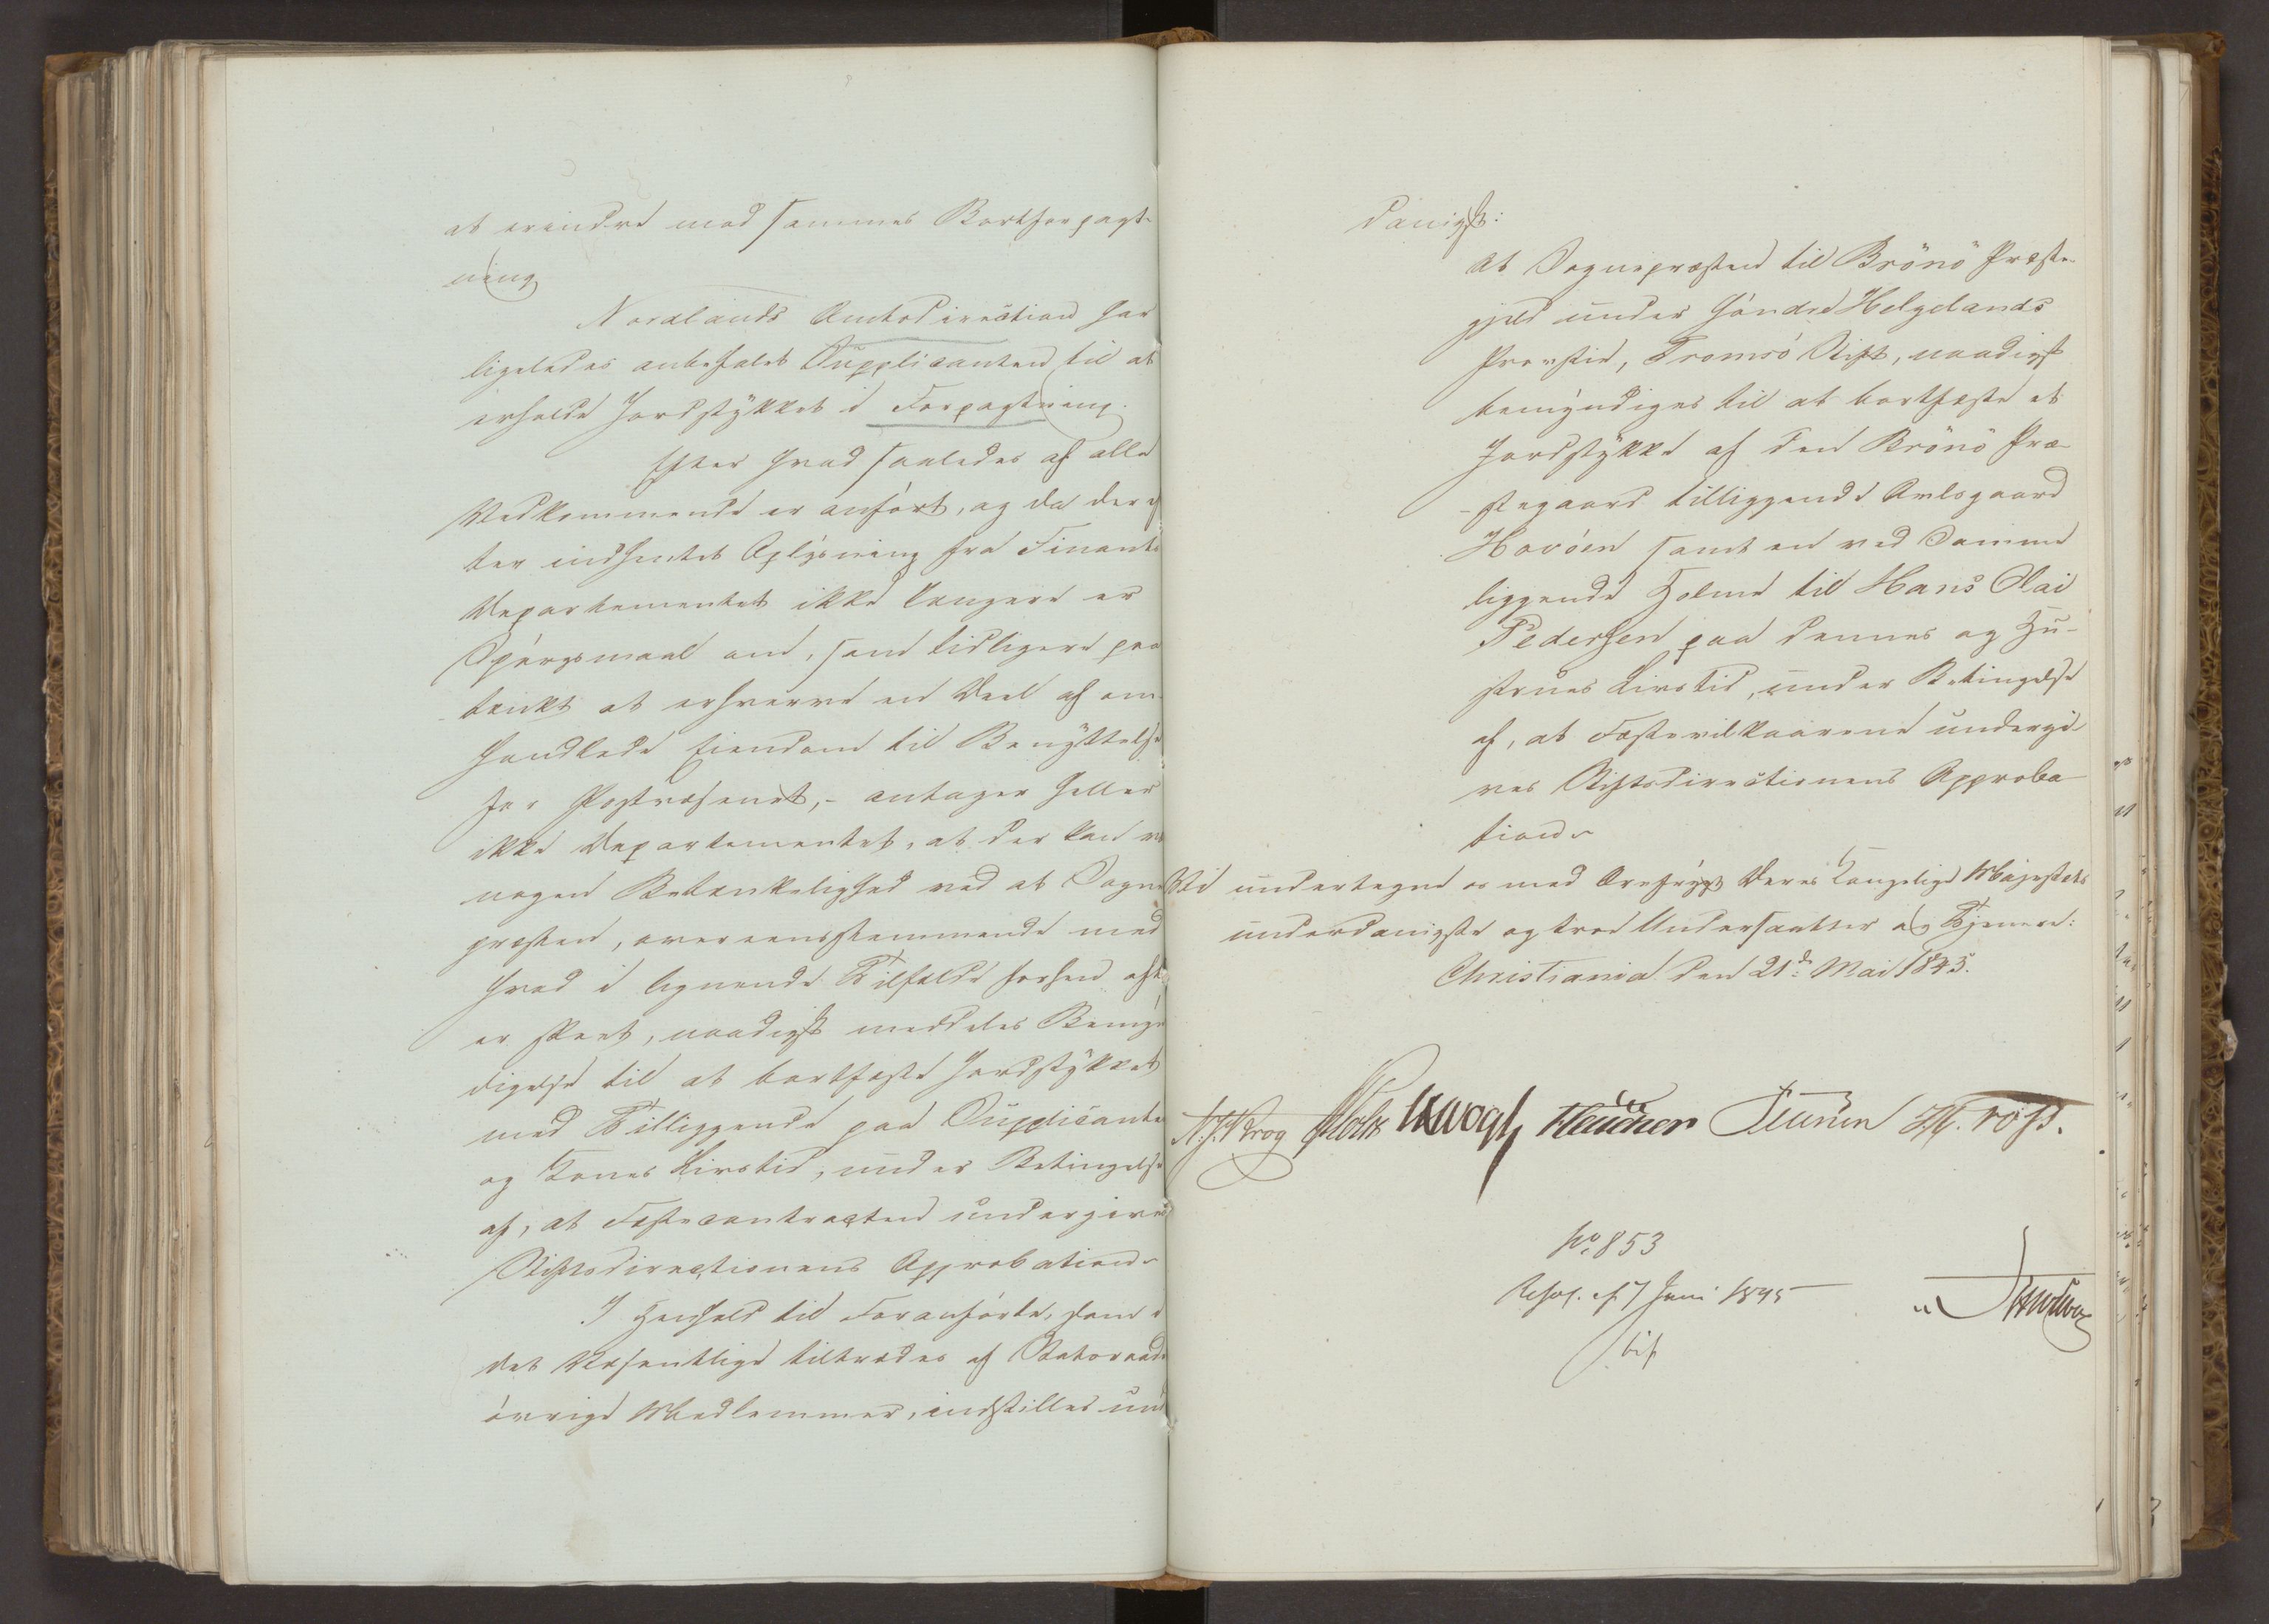 at erindre mod sammes Bortforpagt-
ning
Nordlands Amtsdirection har
ligeledes anbefalet Supplicanten til at
erholde Jordstykket i Forpagtning.
Efter hvad saaledes af alle
Vedkommende er anført, og da der ef
ter indhentet Oplysning fra Finants
Departementet ikke længere er
Spørgsmaal om, som tidligere paa
tænkt at erhverve en Deel af om
handlede Eiendom til Benyttelse
for Postvæsenet, - antager heller
ikke Departementet, at der kan være
nogen Betænkelighed ved at Sogne
præsten, overeensstemmende med
hvad i lignende Tilfælde forhen ofte
er skeet, naadigst meddeles Bemyn
digelse til at bortfæste Jordstykket
med Tilliggende paa Supplicanten
og Kones Livstid, under Betingelse
af, at Fæstecontracten undergives
Stiftsdirectionens Approbation.
I Henhold til Foranførte, som i
det Væsentlige tiltrædes af Statsraadets
øvrige Medlemmer, indstilles und
danigst:
At Sognepræsten til Brönö Præste-
gjeld under Söndre Helgelands
Provstie, Tromsö Stift, naadigst
bemyndiges til at bortfæste et
Jordstykke af den Brönö Præ-
-stegaard tilliggende Avlsgaard
Havöen samt en ved Samme
liggende Holme til Hans Olai
Pedersen paa dennes og Hu-
strues Livstid, under Betingelse
af, at Fæstevilkaarene undergi
ves Stiftsdirectionens Approba
tion.
Vi undertegne os med Ærefrygt Deres Kongelige Majestæts
underdanigste og troe Undersaatter og Tjenere:
Christiania den 21de Mai 1845.
N. J. Krog Holst Vogt Heidmann Petersen H. Foss.
No 853
Resol. af 7 Juni 1845
bif.